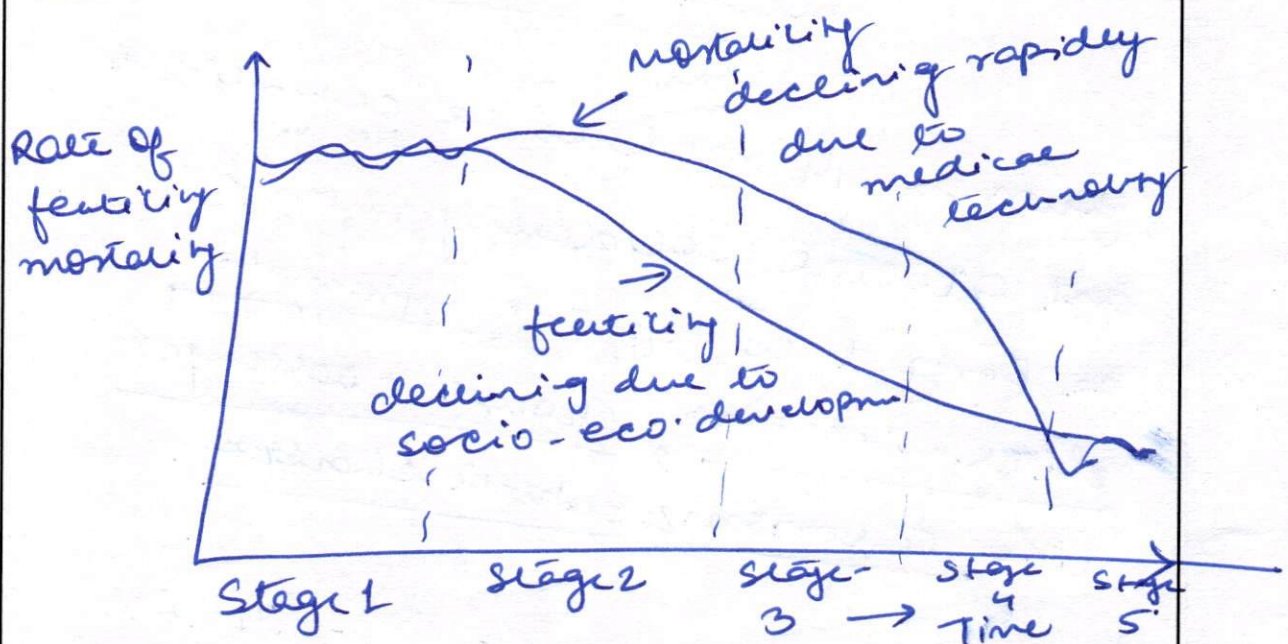 Rate of
fertility
mortality
mortality
declining rapidly
due to
medical
technology
fertility
declining due to
socio-eco. developm
Stage 1
Stage 2
Stage-
3
→ Time
Stage
4
Stage
5